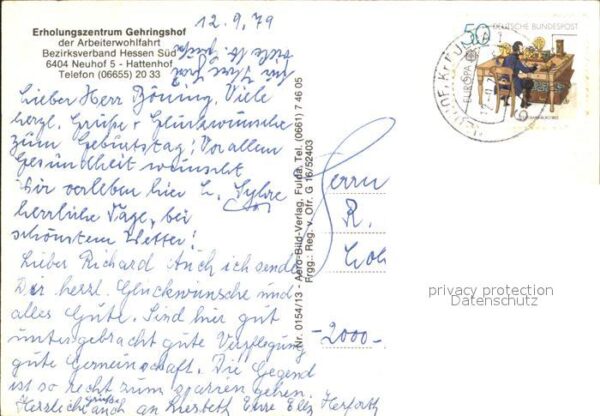 12.9.79
Erholungszentrum Gehringshof
der Arbeiterwohlfahrt
Bezirksverband Hessen Süd
6404 Neuhof 5 - Hattenhof
Telefon (06655) 20 33
für Ihre Frau
viele lb. Grüße
Lieber Herr Böning, Viele
herzl. Grüße + Glückwünsche
zum Geburtstag! Vor allem
Gesundheit wünscht
Wir verleben hier
herrliche Tage, bei
schönstem Wetter!
Lieber Richard Auch ich sende
Dir herzl. Glückwünsche und
alles Gute. Sind hier gut
untergebracht gute Verpflegung
gute Gemeinschaft. Die Gegend
ist so recht zum spazieren gehen.
Herzliche Grüße auch an Liesbeth Eure Elly Herforth
Nr. 0154/13 - Aero-Bild-Verlag, Fulda, Tel. (0661) 7 46 05
Frgg.: Reg. v. Ofr. G 16/52403
50 DEUTSCHE BUNDESPOST
EUROPA
Herrn
R.
-2000-
privacy protection
Datenschutz